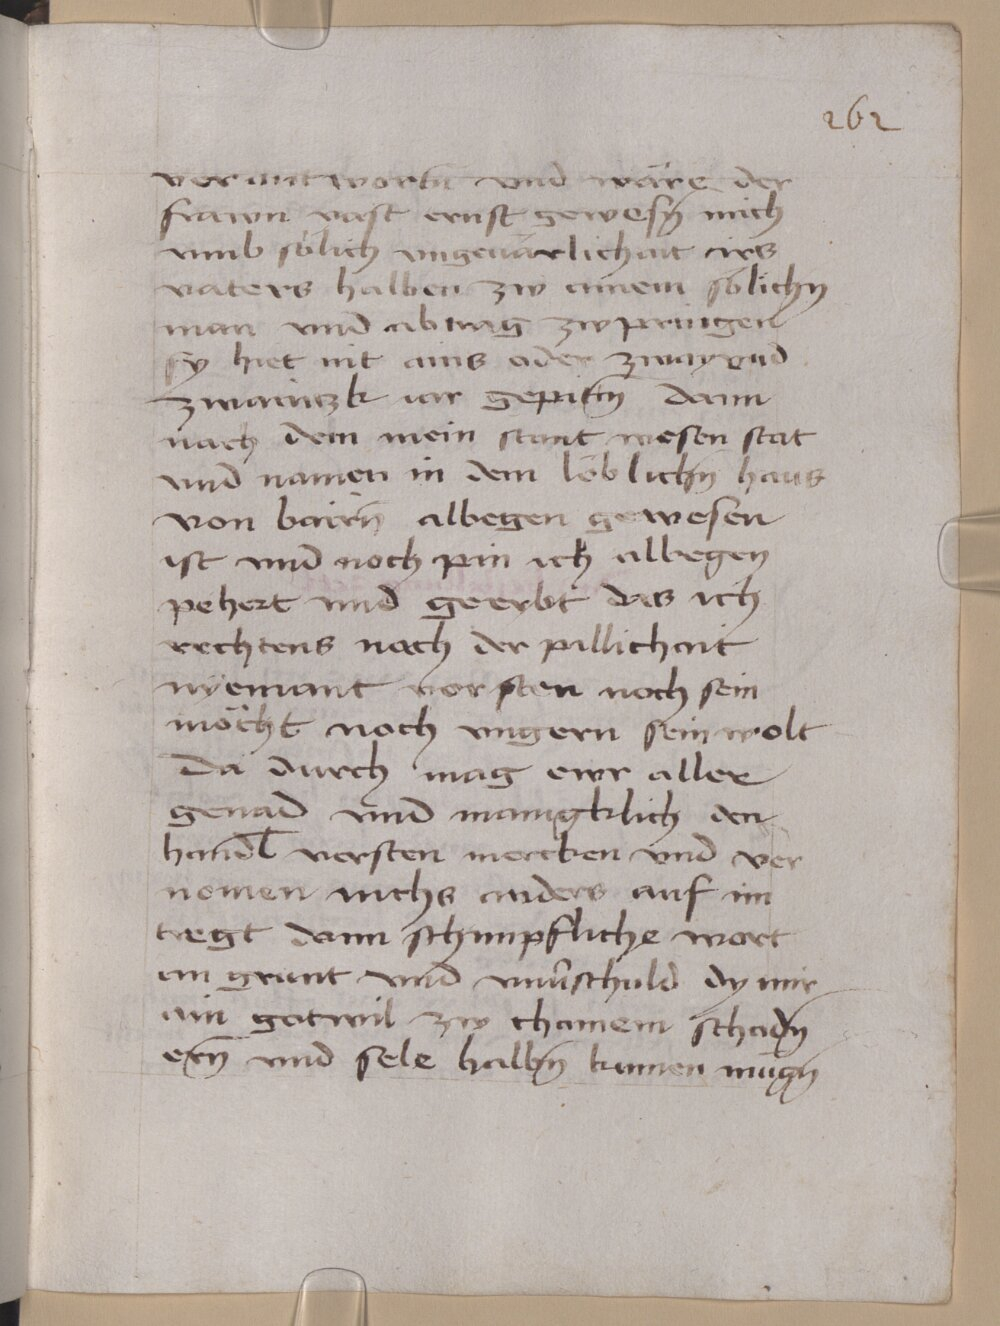 262
verantwortn̄ vnd wäre der
frawn vast ernst gewesn̄ mich
vmb sölich vngeuärlichait irs
vaters halben zw ainem sölichn̄
man vnd abtrag zwpringen
sy hiet nit ains oder zway vnd
zwaintzk iar gepitn̄ dann
nach dem mein stant wesen stat
vnd namen in dem löblichn̄ haus
von bairn̄ albegen gewesen
ist vnd noch pin ich albegen
pehert vnd geerbt das ich
rechtens nach der pillichait
nÿemant vorsten noch sein
möcht noch vngern sein wolt
Da durch mag ewr aller
genad vnd manigklich den
handl versten mercken vnd ver
nomen nichs anders auf im
tregt dann schimpfliche wort
an grunt vnd vnnschuld dy mir
ain gotwil zw chainem schadn̄
ern̄ vnd sele halbn̄ kumen mügn̄